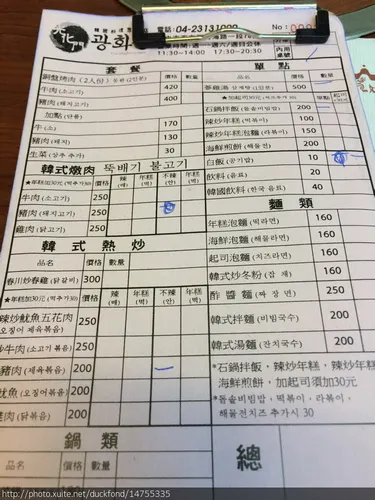 광화
電話:04-23131000
No:
11:30~14:00 17:30~20:30
內用
桌號
套餐 價格 數量
銅盤烤肉(2人份)
牛肉(소고기) 420
豬肉(돼지고기) 400
加點(안룡)
牛(소) 170
豬肉(돼지) 130
生菜(상추 추가) 30
單點 價格 數量
蔘雞湯(삼계탕) 500
石鍋拌飯(돌솥비빔밥) 200
辣炒年糕(떡볶이) 100
辣炒年糕泡麵(라볶이) 150
海鮮煎餅(해물파전) 200
白飯(공기밥) 10
飲料(음료) 20
韓國飲料(한국 음료) 40
韓式燉肉 뚝배기 불고기
★年糕加30元(떡추가30) 價格 辣(매) 年糕(떡) 不辣(안) 年糕(떡)
牛肉(소고기) 250
豬肉(돼지고기) 250
雞肉(닭고기) 250
麵類
年糕泡麵(떡라면) 160
海鮮泡麵(해물라면) 160
起司泡麵(치즈라면) 160
韓式炒冬粉(잡채) 160
酢醬麵(짜장면) 250
韓式拌麵(비빔국수) 200
韓式湯麵(잔치국수) 200
韓式熱炒
品名 價格 數量
春川炒春雞(닭갈비) 300
★年糕加30元(떡추가30) 價格 辣(매) 年糕(떡) 不辣(안) 年糕(떡)
辣炒魷魚五花肉(오징어제육볶음) 250
炒牛肉(소고기볶음) 250
豬肉(제육볶음) 200
魷魚(오징어볶음) 200
雞肉(닭볶음) 200
*石鍋拌飯,辣炒年糕,辣炒年
海鮮煎餅,加起司須加30元
*돌솥비빔밥,떡볶이,라볶이,
해물전치즈 추가시 30
鍋類
品名 價格 數量
總
http://photo.xuite.net/duckfond/14755335